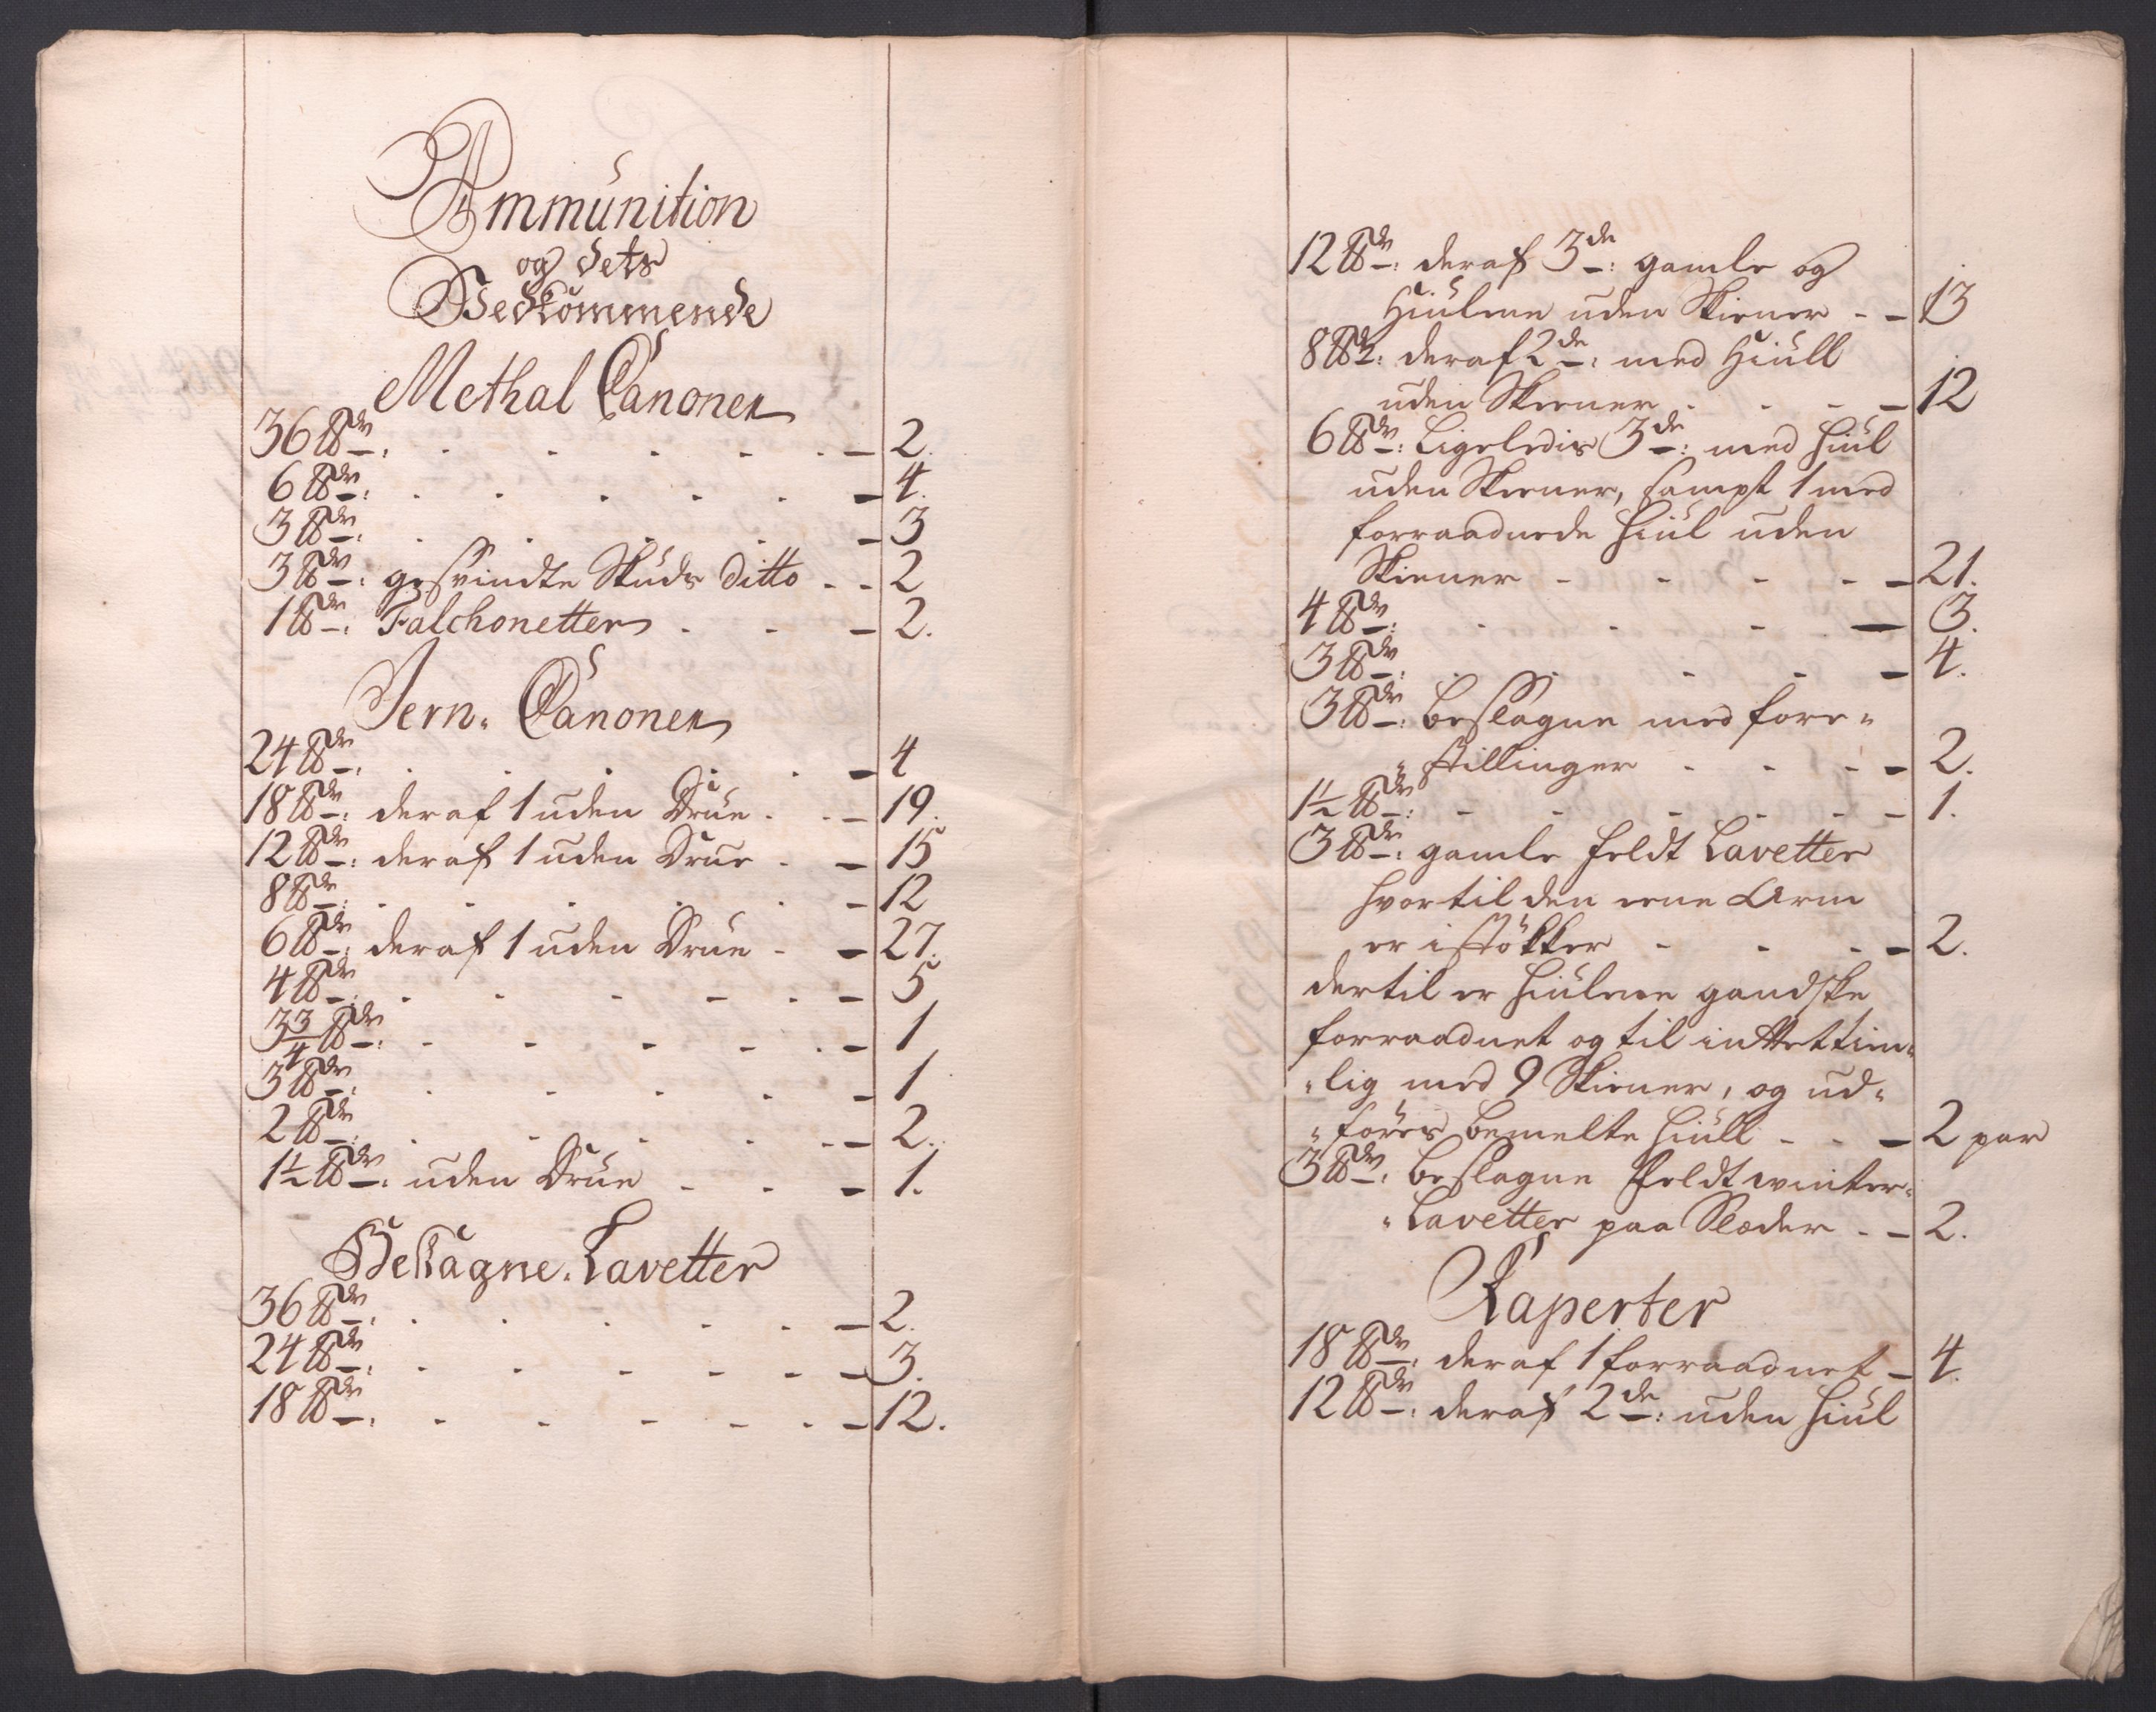 Ammunition
og dets
Vedkommende
Methal Canoner
36 ℔dr: . . . . . — 2.
6 ℔dr: . . . . . — 4.
3 ℔dr: . . . . — 3
3 ℔dr: gesvindte Skuds ditto - - 2
1 ℔dr: Falchonetter . - — 2.
Jern- Canoner
24 ℔dr: . . . . . — 4
18 ℔dr: deraf 1 uden Drue - - — 19.
12 ℔dr: deraf 1 uden Drue - — 15
8 ℔dr: . . . . . — 12
6 ℔dr: deraf 1 uden Drue - — 27.
4 ℔dr: . . . . . — 5
3 3/4 ℔dr: - - - - - — 1
3 ℔dr: . . . . — 1
2 ℔dr: . . . . — 2.
1½ ℔dr: uden Drue - - — 1.
Bettagne- Lavetter
36 ℔dr: . . . . . — 2.
24 ℔dr: . . . . . — 3.
18 ℔dr: . . . . . — 12.
12 ℔dr: deraf 3de: gamle og
Hiulene uden Skiener - — 13
8 ℔dr: deraf 2de: med Hiull
uden Skiener . . . — 12
6 ℔dr: Ligeledis 3de: med Hiul
uden Skiener, sampt 1 med
forraadnede Hiul uden
Skiener - - - - — 21.
4 ℔dr: . . . — 3.
3 ℔dr: . . . . — 4.
3 ℔dr: beslagne med fore-
"stillinger - - - — 2.
1½ ℔dr: - - - - - — 1.
3 ℔dr: gamle feldt Lavetter
hvortil den eene Arm
er i støkker - - - — 2.
dertil er Hiulene gandske
forraadnet og til intet tien-
"lig med 9 Skiener, og ud-
"føres bemelte Hiull - - — 2 par
3 ℔dr: beslagne feldt winter-
"Lavetter paa Slæder - — 2.
Raperter
18 ℔dr: deraf 1 forraadnet — 4.
12 ℔dr: deraf 2de: uden Hiul